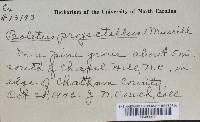 Ex
Herbarium of the University of North Carolina
#13193
Boletus projectellus Murrill
In a pine grove about 5 mi.
south of Chapel Hill, N.C., in
edge of Chatham County.
Oct 21, 1942. J. N. Couch, Coll.